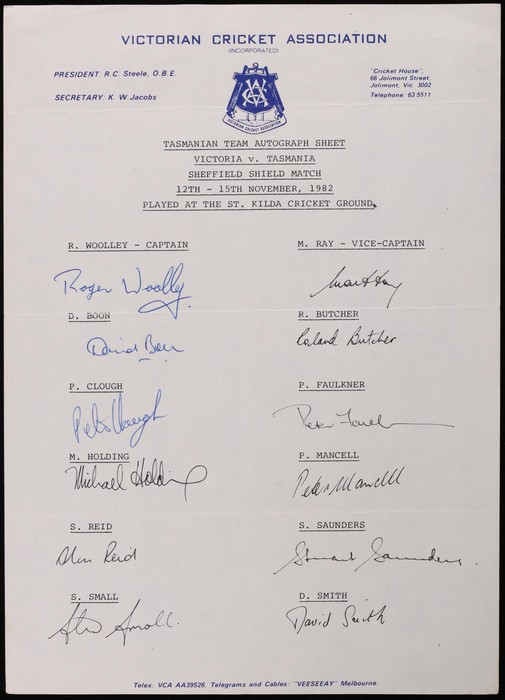 VICTORIAN CRICKET ASSOCIATION
(INCORPORATED)
PRESIDENT: R.C. Steele, O.B.E.
SECRETARY: K. W. Jacobs
"Cricket House",
66 Jolimont Street,
Jolimont, Vic. 3002
Telephone: 63 5511
VCA
VICTORIAN CRICKET ASSOCIATION
TASMANIAN TEAM AUTOGRAPH SHEET
VICTORIA v. TASMANIA
SHEFFIELD SHIELD MATCH
12TH - 15TH NOVEMBER, 1982
PLAYED AT THE ST. KILDA CRICKET GROUND.
R. WOOLLEY - CAPTAIN
M. RAY - VICE-CAPTAIN
Roger Woolley
Mark Ray
D. BOON
R. BUTCHER
David Boon
Roland Butcher
P. CLOUGH
P. FAULKNER
Peter Clough
Peter Faulkner
M. HOLDING
P. MANCELL
Michael Holding
Peter Mancell
S. REID
S. SAUNDERS
Alan Reid
Stuart Saunders
S. SMALL
D. SMITH
Steve Small
David Smith
Telex: VCA AA39526. Telegrams and Cables: "VEESEEAY" Melbourne.